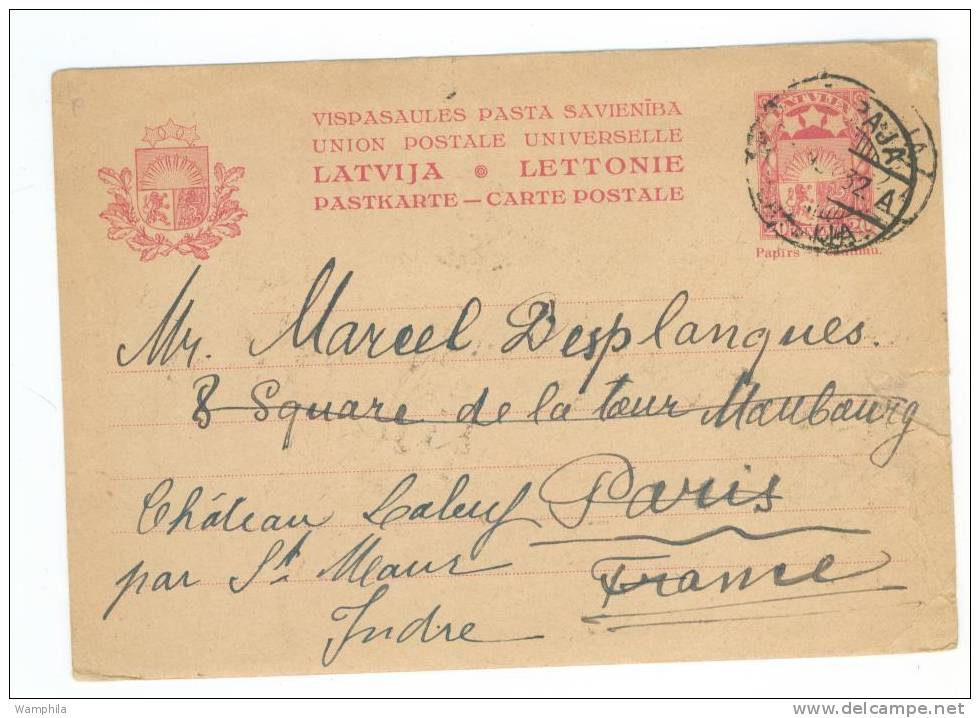 VISPASAULES PASTA SAVIENĪBA
UNION POSTALE UNIVERSELLE
LATVIJA LETTONIE
PASTKARTE — CARTE POSTALE
LATVIJA
Papīrs
Mr. Marcel Desplanques.
8 Square de la tour Maubourg
Paris
France
Château
par St. Maur
Indre
Wamphila
www.delcampe.net